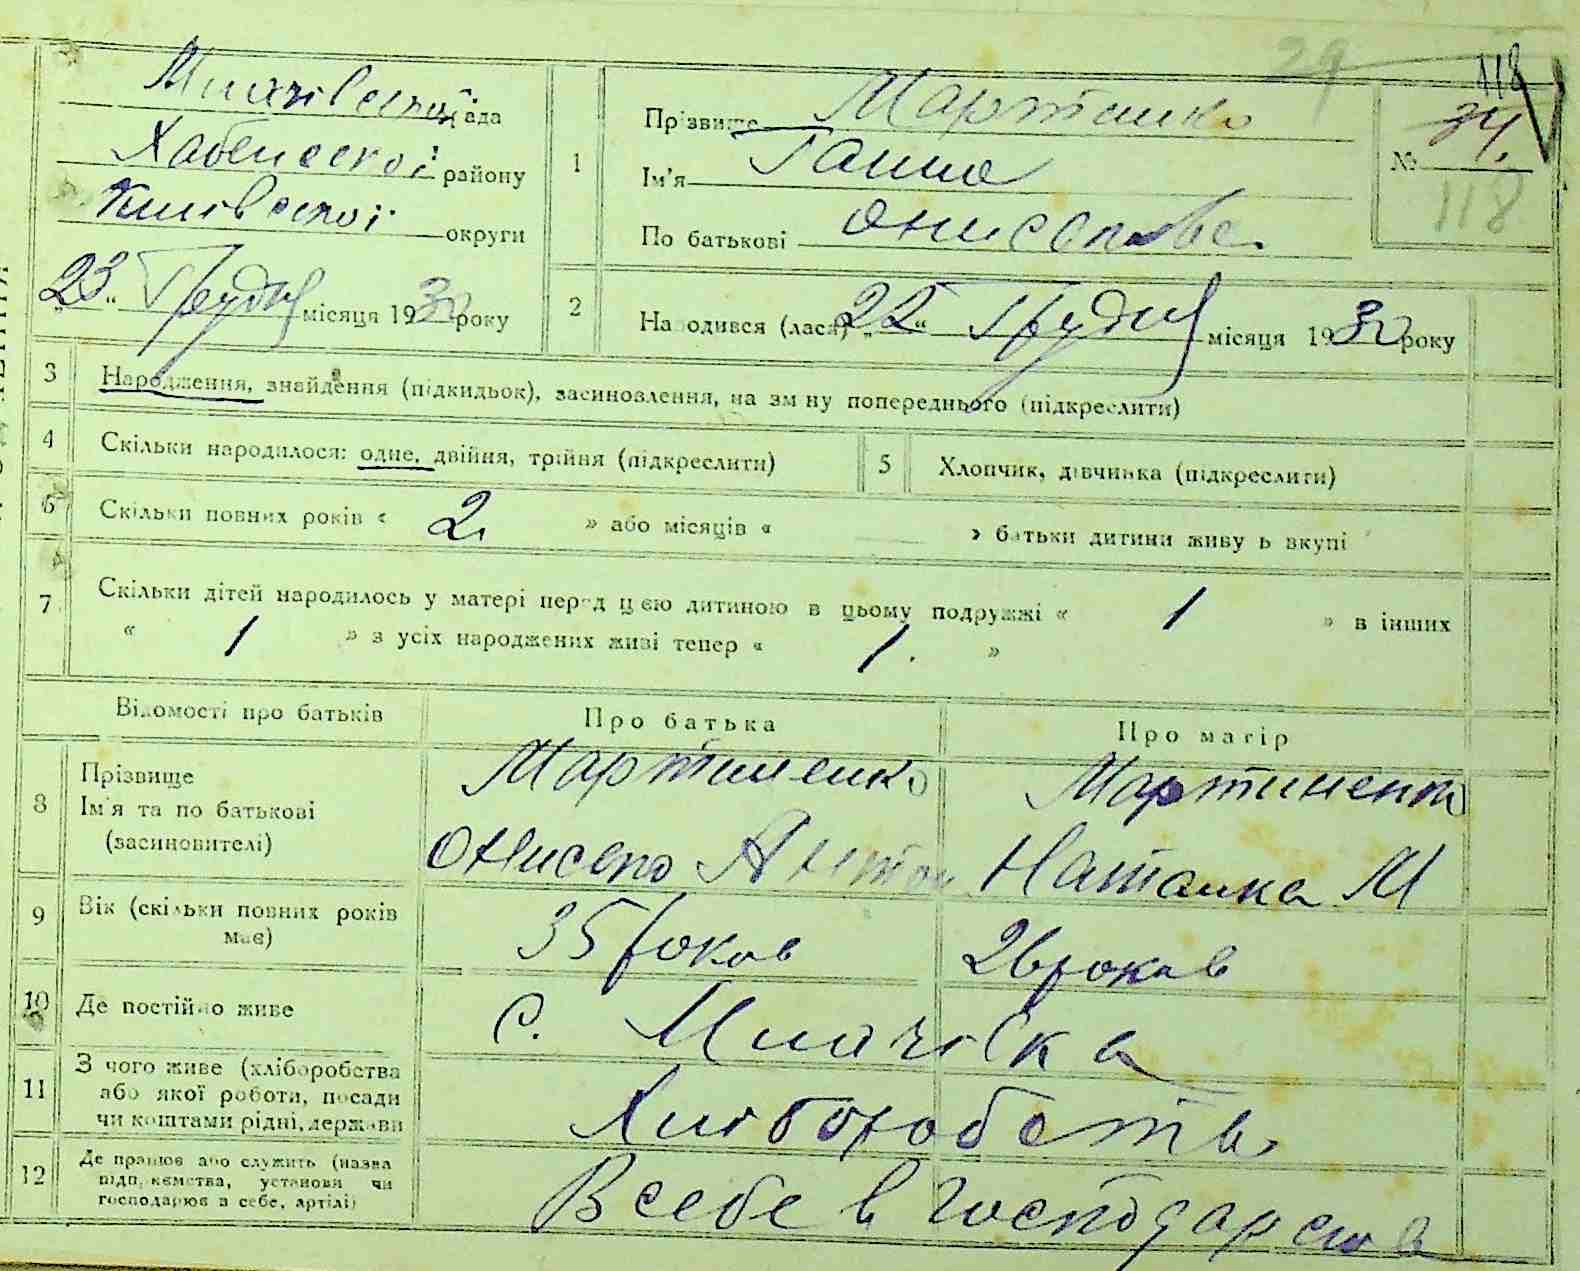 29
118
Миачівської рада
Хабенської району
Київської округи
„23“ Грудня місяця 1930 року
1
Прізвище Мартинко
Ім'я Ганна
По батькові Онисковна
№ 34.
118
2
Народився (лася) „22“ Грудня місяця 1930 року
3 Народження, знайдення (підкидьок), засиновлення, на зміну попереднього (підкреслити)
4 Скільки народилося: одне, двійня, трійня (підкреслити)
5 Хлопчик, дівчинка (підкреслити)
6 Скільки повних років « 2 » або місяців « — » батьки дитини живуть вкупі
7 Скільки дітей народилось у матері перед цією дитиною в цьому подружжі « 1 » в інших
« 1 » з усіх народжених живі тепер « 1. »
Відомості про батьків Про батька Про матір
8 Прізвище
Ім'я та по батькові
(засиновителі)
Мартиненко
Онисько Антон
Мартиненко
Наталка М
9 Вік (скільки повних років
має)
35 роков
26 роков
10 Де постійно живе
с. Миачівка
11 З чого живе (хліборобства
або якої роботи, посади
чи коштами рідні, держави
Хліборобств
12 Де працює або служить (назва
підприємства, установи чи
господарює в себе, артілі)
В себе в господарства